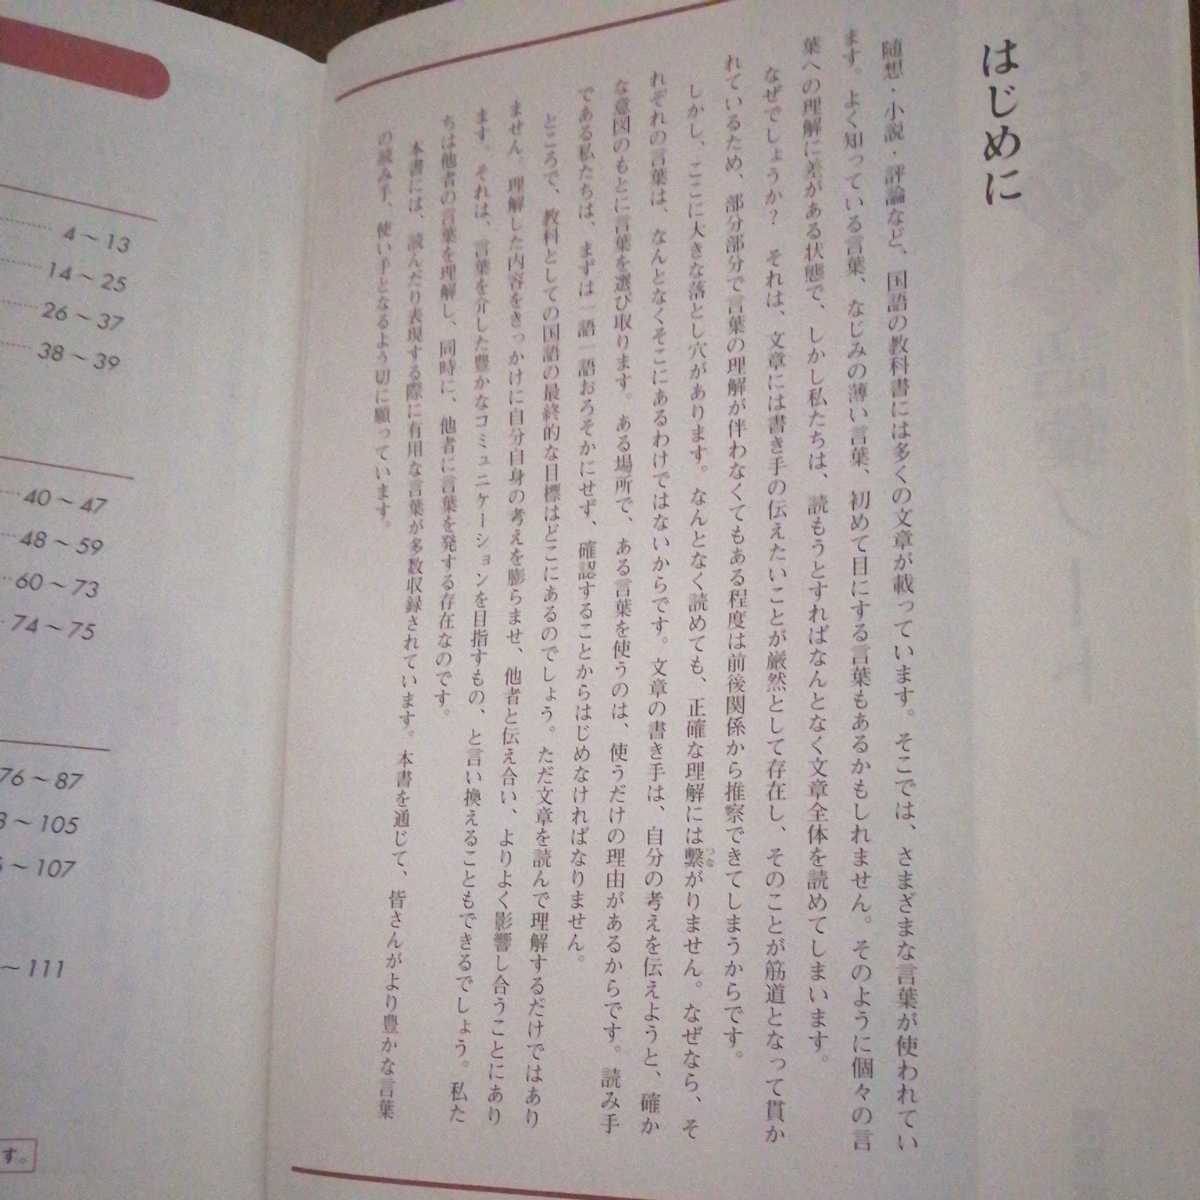 はじめに
随想・小説・評論など、国語の教科書には多くの文章が載っています。そこでは、さまざまな言葉が使われてい
ます。よく知っている言葉、なじみの薄い言葉、初めて目にする言葉もあるかもしれません。そのように個々の言
葉への理解に差がある状態で、しかし私たちは、読もうとすればなんとなく文章全体を読めてしまいます。
なぜでしょうか？　それは、文章には書き手の伝えたいことが厳然として存在し、そのことが筋道となって貫か
れているため、部分部分で言葉の理解が伴わなくてもある程度は前後関係から推察できてしまうからです。
しかし、ここに大きな落とし穴があります。なんとなく読めても、正確な理解には繋がりません。なぜなら、そ
れぞれの言葉は、なんとなくそこにあるわけではないからです。文章の書き手は、自分の考えを伝えようと、確か
な意図のもとに言葉を選び取ります。ある場所で、ある言葉を使うのは、使うだけの理由があるからです。読み手
である私たちは、まずは一語一語おろそかにせず、確認することからはじめなければなりません。
ところで、教科としての国語の最終的な目標はどこにあるのでしょう。ただ文章を読んで理解するだけではあり
ません。理解した内容をきっかけに自分自身の考えを膨らませ、他者と伝え合い、よりよく影響し合うことにあり
ます。それは、言葉を介した豊かなコミュニケーションを目指すもの、と言い換えることもできるでしょう。私た
ちは他者の言葉を理解し、同時に、他者に言葉を発する存在なのです。
本書には、読んだり表現する際に有用な言葉が多数収録されています。本書を通じて、皆さんがより豊かな言葉
の読み手、使い手となるよう切に願っています。
4～13
14～25
26～37
38～39
40～47
48～59
60～73
74～75
76～87
～105
～107
～111
す。